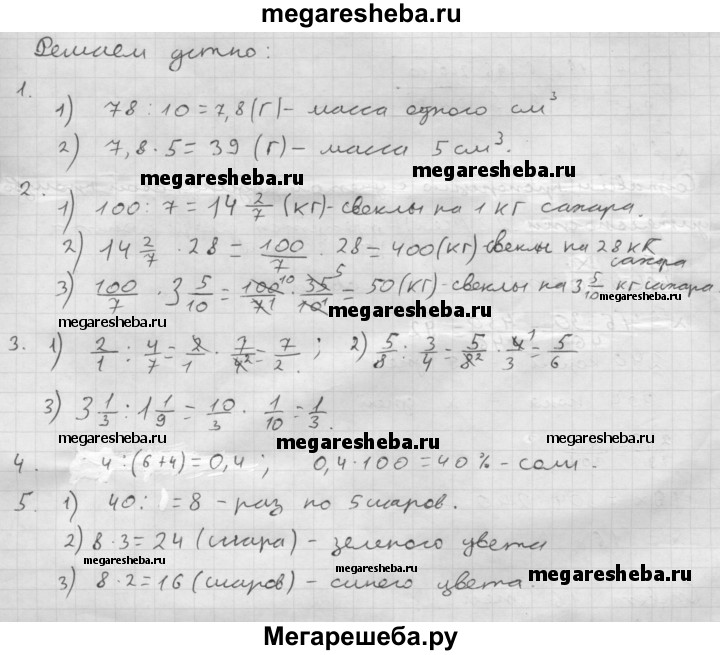 megaresheba.ru
Решаем устно:
1.
1) 78 : 10 = 7,8 (г) - масса одного см³
2) 7,8 · 5 = 39 (г) - масса 5 см³.
megaresheba.ru
megaresheba.ru
2.
1) 100 : 7 = 14 2/7 (кг) - свеклы на 1 кг сахара.
2) 14 2/7 · 28 = 100/7 · 28 = 400 (кг) свеклы на 28 кг сахара
3) 100/7 · 3 5/10 = 100/7 · 35/10 = 50 (кг) - свеклы на 3 5/10 кг сахара.
megaresheba.ru
megaresheba.ru
3. 1) 2/1 : 4/7 = 2/1 · 7/4 = 7/2 ; 2) 5/8 : 3/4 = 5/8 · 4/3 = 5/6
3) 3 1/3 : 1 1/9 = 10/3 · 1/10 = 1/3.
megaresheba.ru
megaresheba.ru
4. 4 : (6+4) = 0,4 ; 0,4 · 100 = 40 % - соли.
5. 1) 40 : = 8 - раз по 5 шаров.
2) 8 · 3 = 24 (шара) - зеленого цвета
megaresheba.ru
megaresheba.ru
3) 8 · 2 = 16 (шаров) - синего цвета.
megaresheba.ru
Мегарешеба.ру